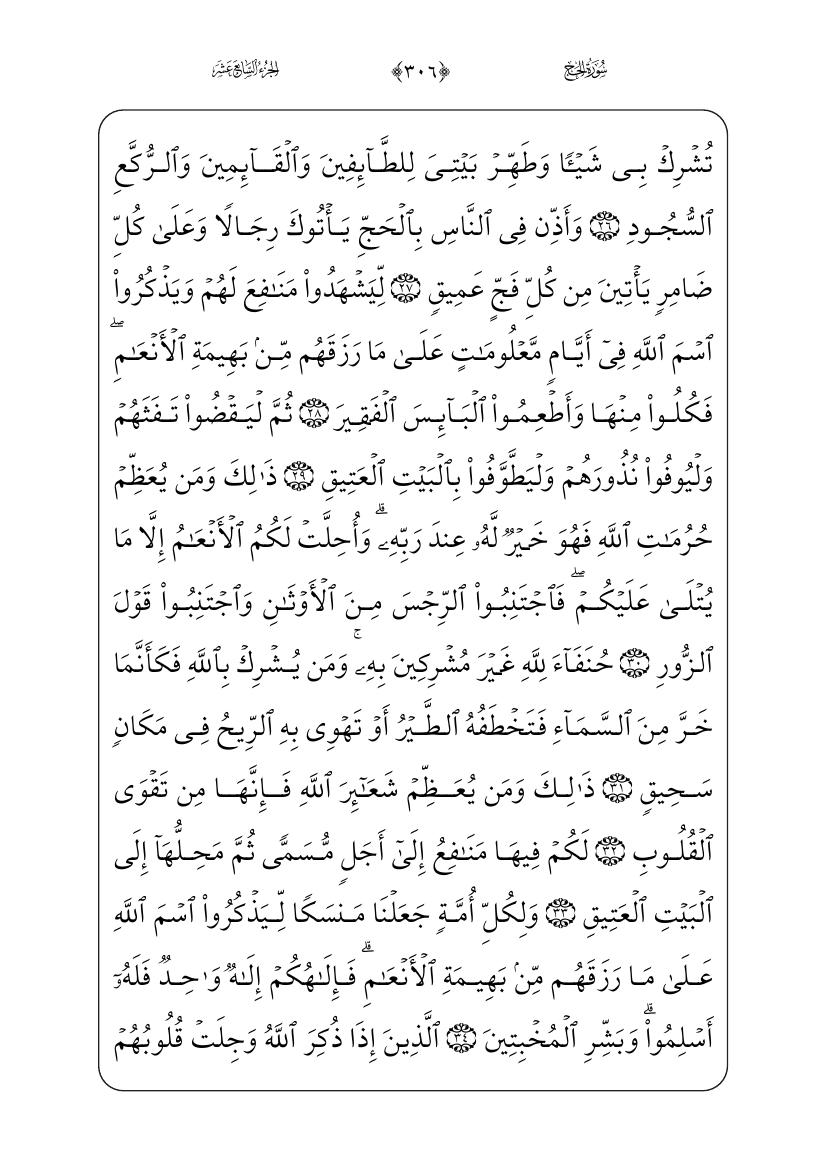 سُورَةُ الحَجِّ ﴿٣٠٦﴾ الجُزْءُ السَّابِعَ عَشَرَ
تُشْرِكْ بِى شَيْـًٔا وَطَهِّرْ بَيْتِىَ لِلطَّآئِفِينَ وَٱلْقَآئِمِينَ وَٱلرُّكَّعِ
ٱلسُّجُودِ ٢٦ وَأَذِّن فِى ٱلنَّاسِ بِٱلْحَجِّ يَأْتُوكَ رِجَالًا وَعَلَىٰ كُلِّ
ضَامِرٍ يَأْتِينَ مِن كُلِّ فَجٍّ عَمِيقٍ ٢٧ لِّيَشْهَدُوا۟ مَنَـٰفِعَ لَهُمْ وَيَذْكُرُوا۟
ٱسْمَ ٱللَّهِ فِىٓ أَيَّامٍ مَّعْلُومَـٰتٍ عَلَىٰ مَا رَزَقَهُم مِّنۢ بَهِيمَةِ ٱلْأَنْعَـٰمِ ۖ
فَكُلُوا۟ مِنْهَا وَأَطْعِمُوا۟ ٱلْبَآئِسَ ٱلْفَقِيرَ ٢٨ ثُمَّ لْيَقْضُوا۟ تَفَثَهُمْ
وَلْيُوفُوا۟ نُذُورَهُمْ وَلْيَطَّوَّفُوا۟ بِٱلْبَيْتِ ٱلْعَتِيقِ ٢٩ ذَٰلِكَ وَمَن يُعَظِّمْ
حُرُمَـٰتِ ٱللَّهِ فَهُوَ خَيْرٌ لَّهُۥ عِندَ رَبِّهِۦ ۗ وَأُحِلَّتْ لَكُمُ ٱلْأَنْعَـٰمُ إِلَّا مَا
يُتْلَىٰ عَلَيْكُمْ ۖ فَٱجْتَنِبُوا۟ ٱلرِّجْسَ مِنَ ٱلْأَوْثَـٰنِ وَٱجْتَنِبُوا۟ قَوْلَ
ٱلزُّورِ ٣٠ حُنَفَآءَ لِلَّهِ غَيْرَ مُشْرِكِينَ بِهِۦ ۚ وَمَن يُشْرِكْ بِٱللَّهِ فَكَأَنَّمَا
خَرَّ مِنَ ٱلسَّمَآءِ فَتَخْطَفُهُ ٱلطَّيْرُ أَوْ تَهْوِى بِهِ ٱلرِّيحُ فِى مَكَانٍ
سَحِيقٍ ٣١ ذَٰلِكَ وَمَن يُعَظِّمْ شَعَـٰٓئِرَ ٱللَّهِ فَإِنَّهَا مِن تَقْوَى
ٱلْقُلُوبِ ٣٢ لَكُمْ فِيهَا مَنَـٰفِعُ إِلَىٰٓ أَجَلٍ مُّسَمًّى ثُمَّ مَحِلُّهَآ إِلَى
ٱلْبَيْتِ ٱلْعَتِيقِ ٣٣ وَلِكُلِّ أُمَّةٍ جَعَلْنَا مَنسَكًا لِّيَذْكُرُوا۟ ٱسْمَ ٱللَّهِ
عَلَىٰ مَا رَزَقَهُم مِّنۢ بَهِيمَةِ ٱلْأَنْعَـٰمِ ۗ فَإِلَـٰهُكُمْ إِلَـٰهٌ وَٰحِدٌ فَلَهُۥٓ
أَسْلِمُوا۟ ۗ وَبَشِّرِ ٱلْمُخْبِتِينَ ٣٤ ٱلَّذِينَ إِذَا ذُكِرَ ٱللَّهُ وَجِلَتْ قُلُوبُهُمْ